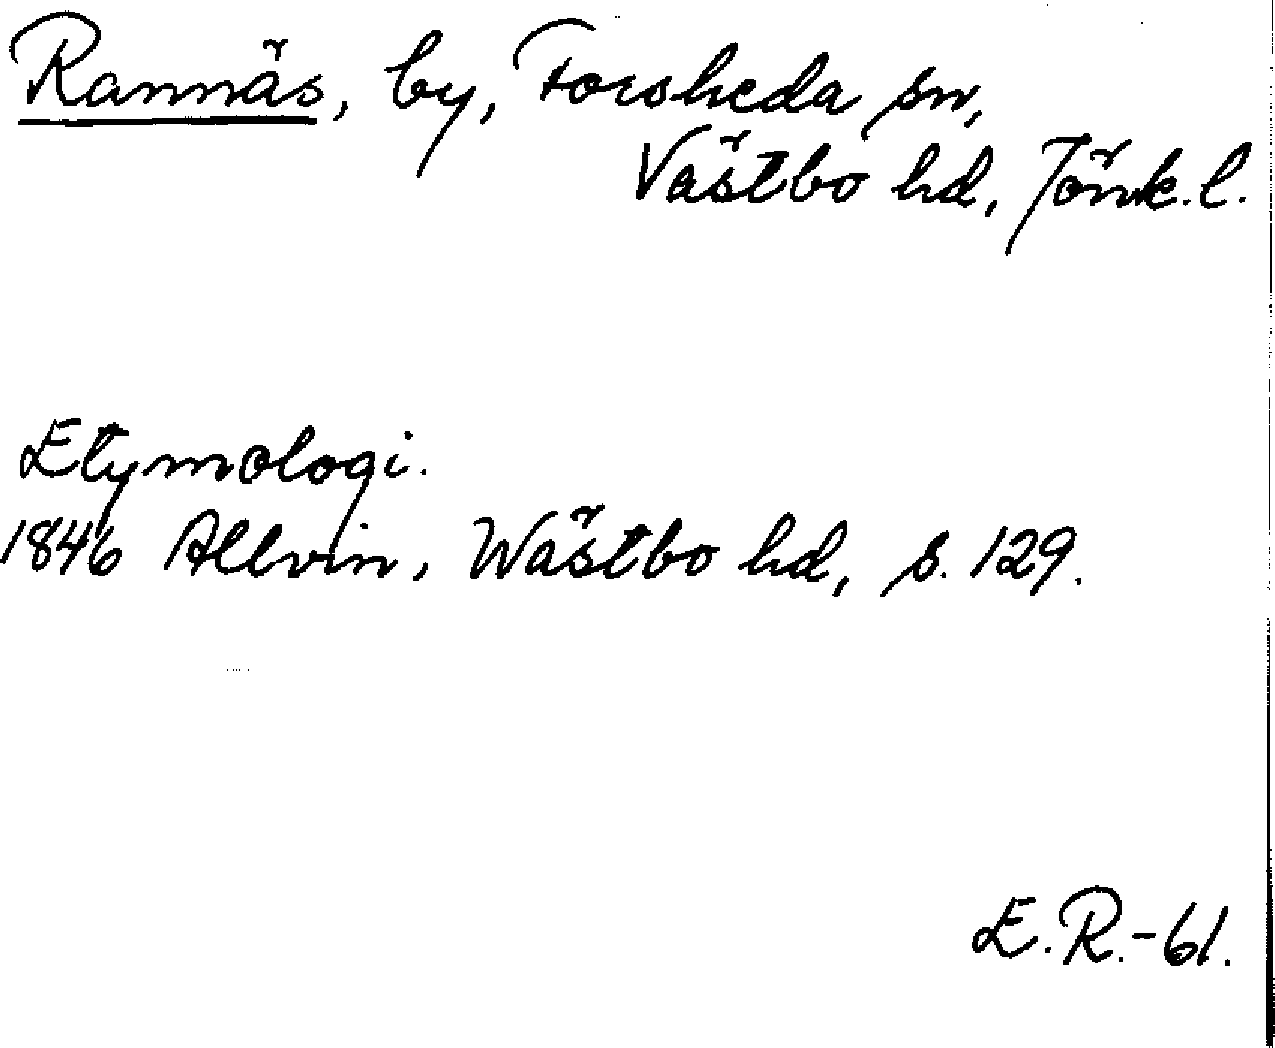 Rannäs, by, Forsheda sn,
Västbo hd, Jönk. l.
Etymologi.
1846 Allvin, Wästbo hd, s. 129.
E. R. - 61.